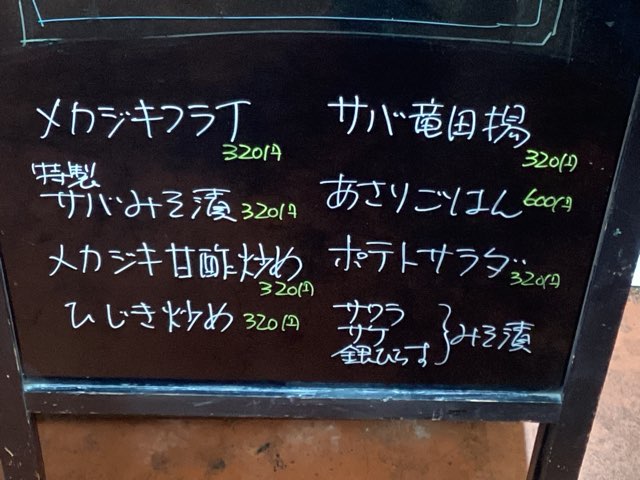 メカジキフライ
320円
特製
サバみそ漬 320円
メカジキ甘酢炒め
320円
ひじき炒め 320円
サバ竜田揚
320円
あさりごはん 600円
ポテトサラダ
320円
サワラ
サケ
銀ひらす
みそ漬